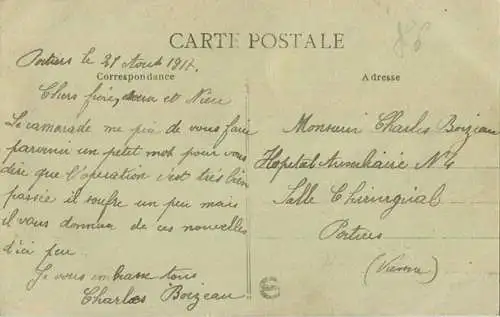 CARTE POSTALE
Correspondance
Adresse
Poitiers le 21 Aout 191
Chers frère, et
Le camarade me pris de vous faire
parvenir un petit mot pour vous
dire que l'opération s'est très bien
passée il soufre un peu mais
il vous donnera de ces nouvelles
d'ici peu
Je vous embrasse tous
Charles Boizeau
Monsieur Charles Boizeau
Hopital Auxiliaire N° 4
Salle Chirurgical
Poitiers
(Vienne)